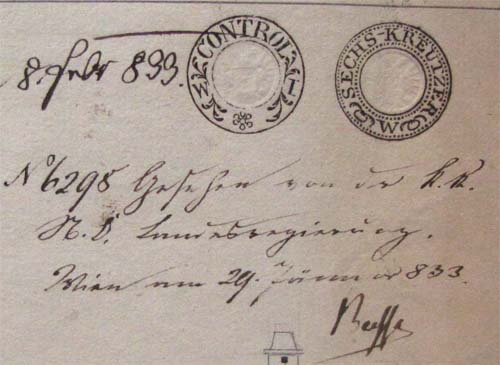 CONTROL
W T
SECHS-KREUTZER
W
8. Febr 833.
No 6298 Gesehen von der k. k.
N. Ö. Landesregierung.
Wien am 29. Jänner 833.